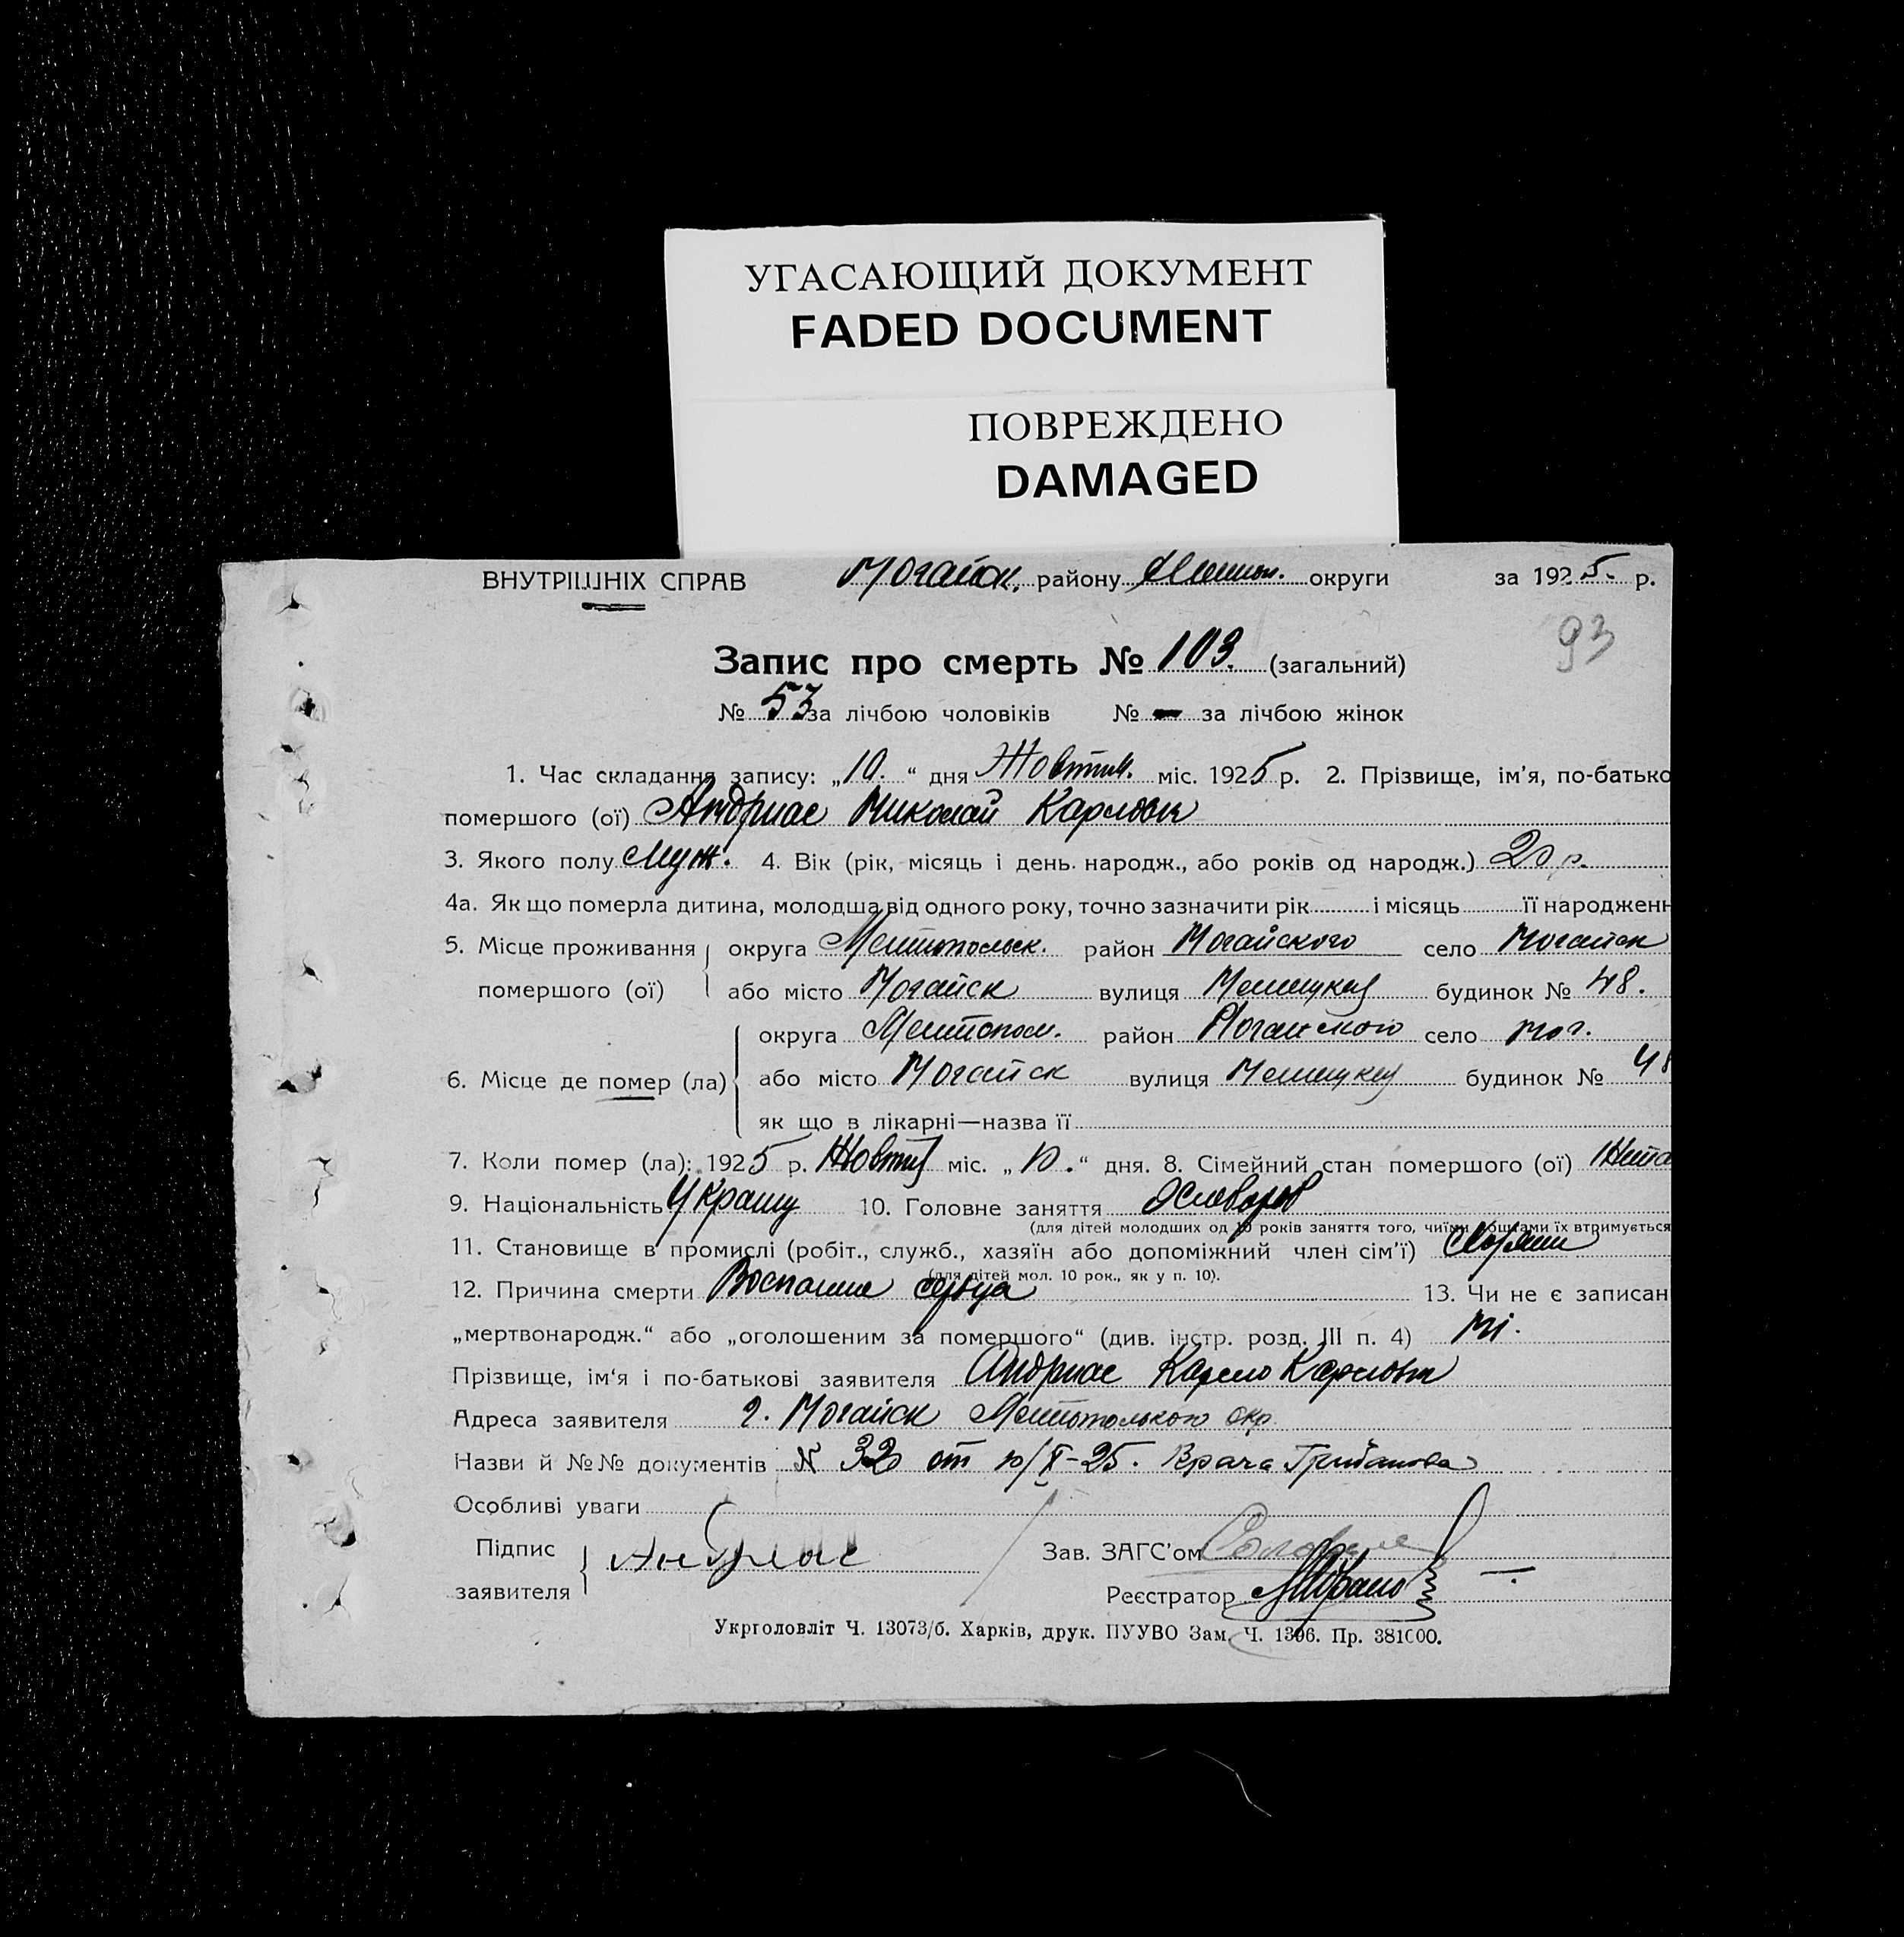 УГАСАЮЩИЙ ДОКУМЕНТ
FADED DOCUMENT
ПОВРЕЖДЕНО
DAMAGED
ВНУТРІШНІХ СПРАВ Ногайск. району округи за 1925. р.
93
Запис про смерть № 103. (загальний)
№ 53 за лічбою чоловіків № – за лічбою жінок
1. Час складання запису: „10.“ дня Жовтня. міс. 1925 р. 2. Прізвище, ім'я, по-батько
помершого (ої) Андриас Николай Карлович
3. Якого полу Муж. 4. Вік (рік, місяць і день. народж., або років од народж.) 20 р.
4а. Як що померла дитина, молодша від одного року, точно зазначити рік і місяць її народженн
5. Місце проживання округа Мелитопольск. район Ногайского село Ногайск
помершого (ої) або місто Ногайск вулиця будинок № 48.
округа Мелитопол. район Ногайского село Ног.
6. Місце де помер (ла) або місто Ногайск вулиця будинок № 48
як що в лікарні—назва її
7. Коли помер (ла): 1925 р. міс. „10.“ дня. 8. Сімейний стан помершого (ої)
9. Національність 10. Головне заняття
(для дітей молодших од 10 років заняття того, чиїми коштами їх втримується
11. Становище в промислі (робіт., служб., хазяїн або допоміжний член сім'ї)
(для дітей мол. 10 рок., як у п. 10).
12. Причина смерти сердца 13. Чи не є записан
„мертвонародж.“ або „оголошеним за помершого“ (див. інстр. розд. III п. 4) Ні.
Прізвище, ім'я і по-батькові заявителя Андриас Карло Карлович
Адреса заявителя г. Ногайск Мелитопольского окр.
Назви й №№ документів № 32 от 10/X-25. Врача Грибанова
Особливі уваги
Підпис Андриас Зав. ЗАГС'ом
заявителя Реєстратор
Укрголовліт Ч. 13073/б. Харків, друк. ПУУВО Зам. Ч. 1306. Пр. 381000.